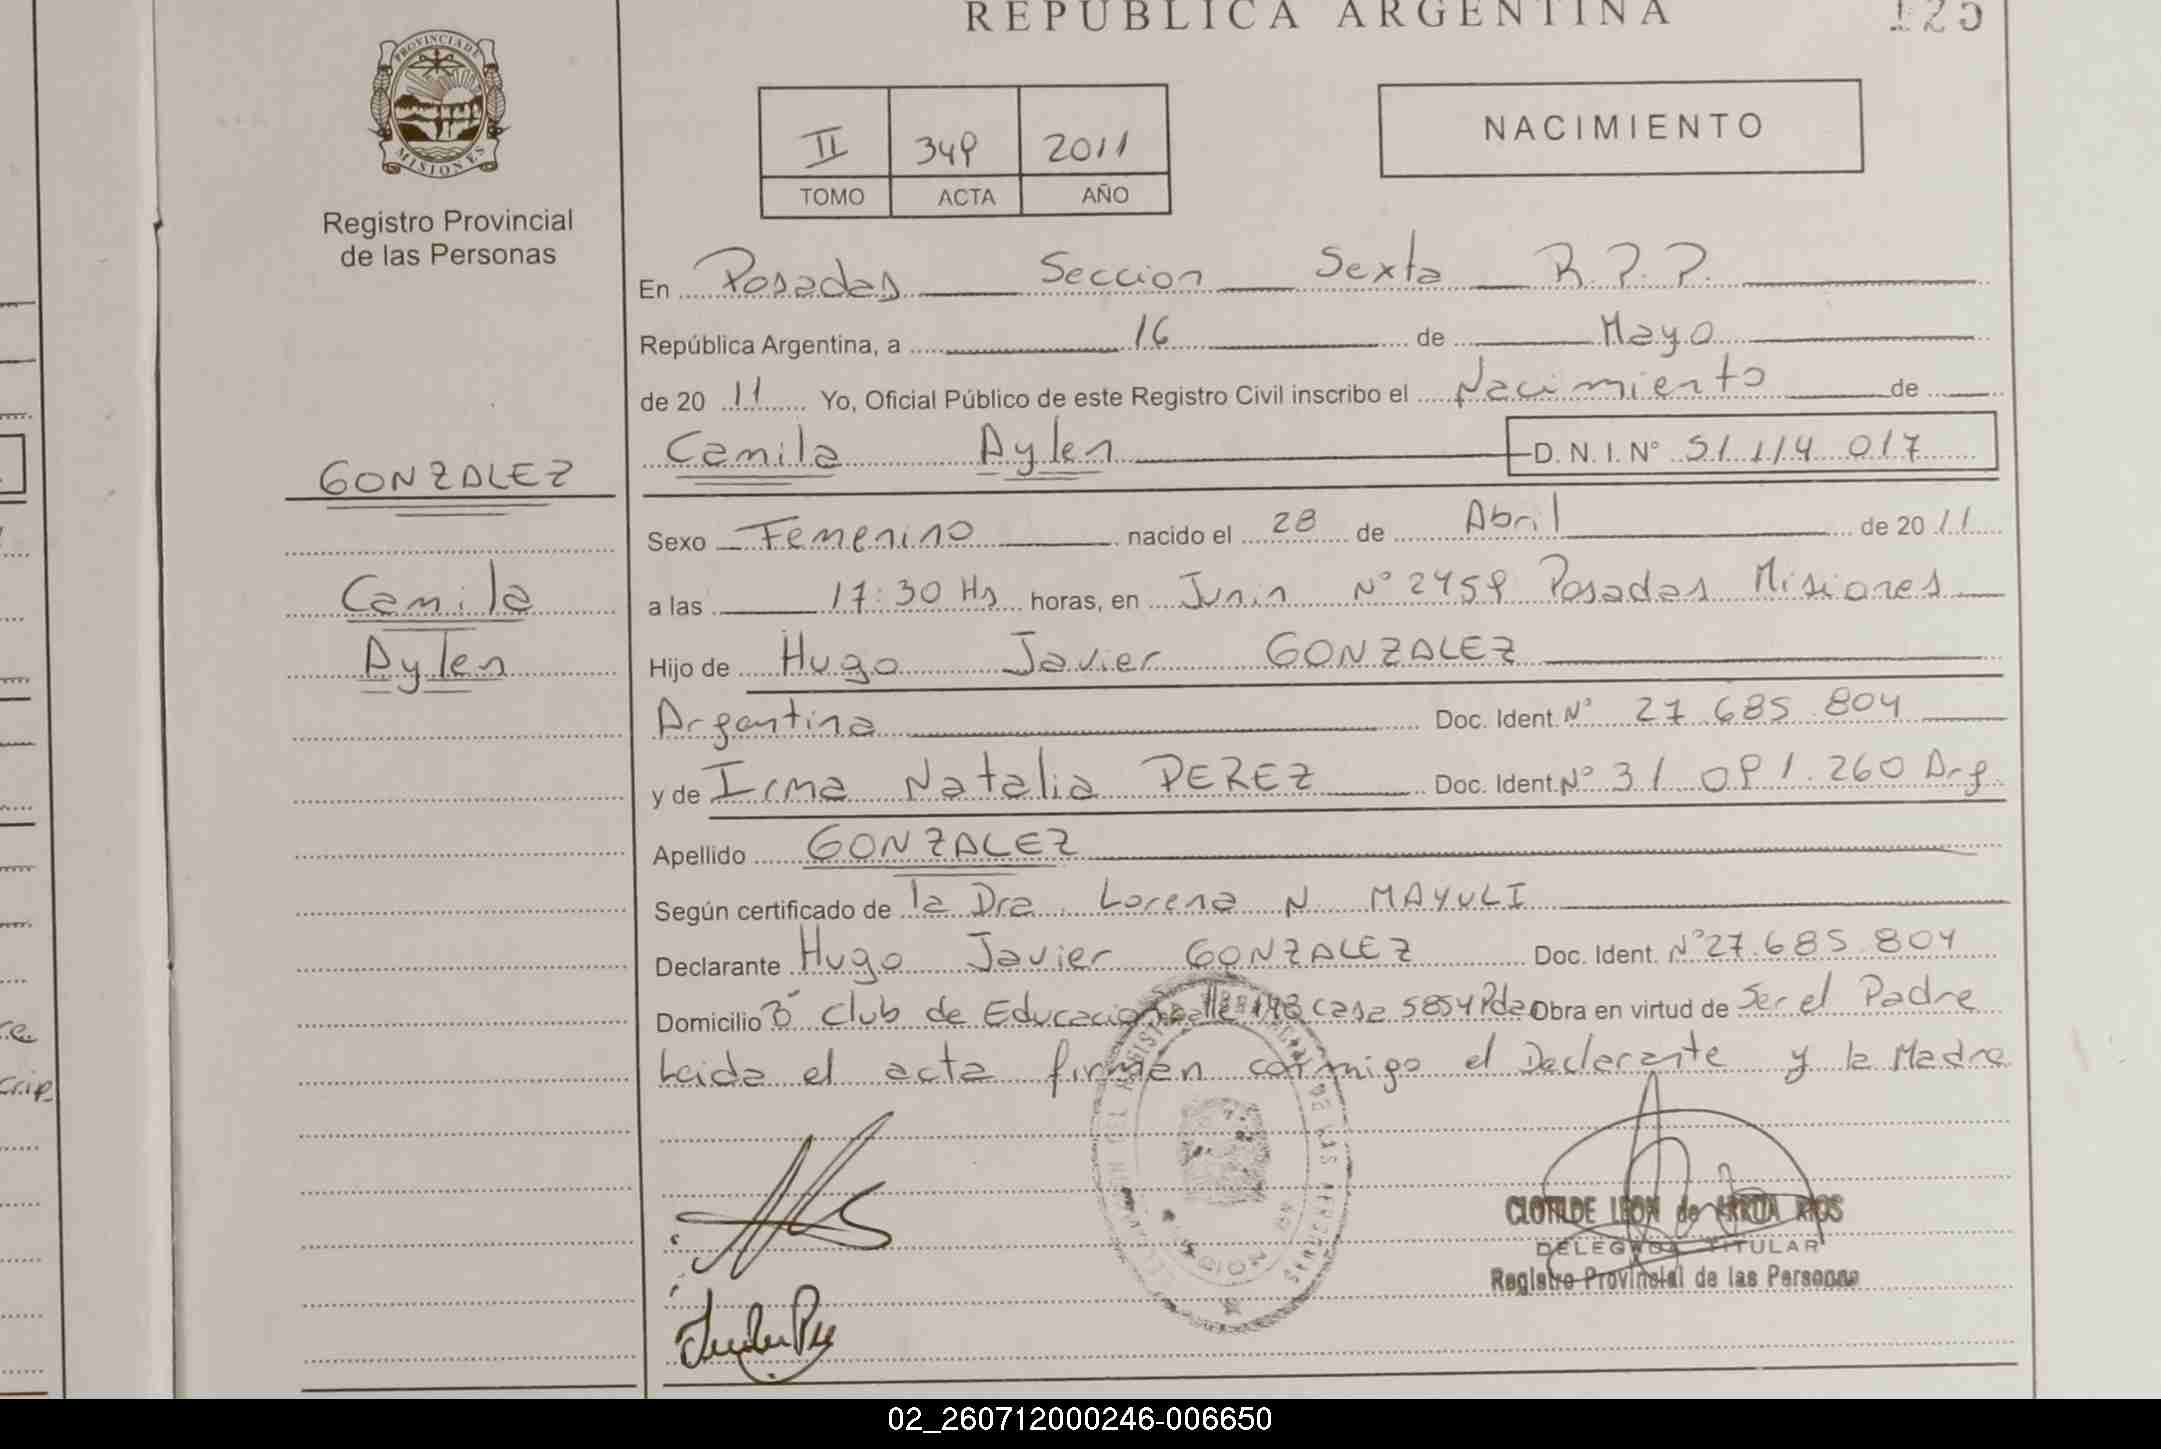 REPUBLICA ARGENTINA
125
PROVINCIA DE
MISIONES
Registro Provincial
de las Personas
II 349 2011
TOMO ACTA AÑO
NACIMIENTO
En Posadas Seccion Sexta R.P.P.
República Argentina, a 16 de Mayo
de 2011 Yo, Oficial Público de este Registro Civil inscribo el Nacimiento de
Camila Aylen D.N.I. Nº 51 114 017
GONZALEZ
Camila
Aylen
Sexo Femenino nacido el 28 de Abril de 2011
a las 17:30 Hs horas, en Junin Nº 2459 Posadas Misiones
Hijo de Hugo Javier GONZALEZ
Argentina Doc. Ident. Nº 27 685 804
y de Irma Natalia PEREZ Doc. Ident. Nº 31 091.260 Arg.
Apellido GONZALEZ
Según certificado de la Dra. Lorena N. MAYULI
Declarante Hugo Javier GONZALEZ Doc. Ident. Nº 27.685.804
Domicilio Bº Club de Educacion calle casa 5854 Pdas Obra en virtud de Ser el Padre
Leida el acta firman conmigo el Declarante y la Madre
CLOTILDE LEON de ARRUA RIOS
DELEGADA TITULAR
Registro Provincial de las Personas
02_260712000246-006650